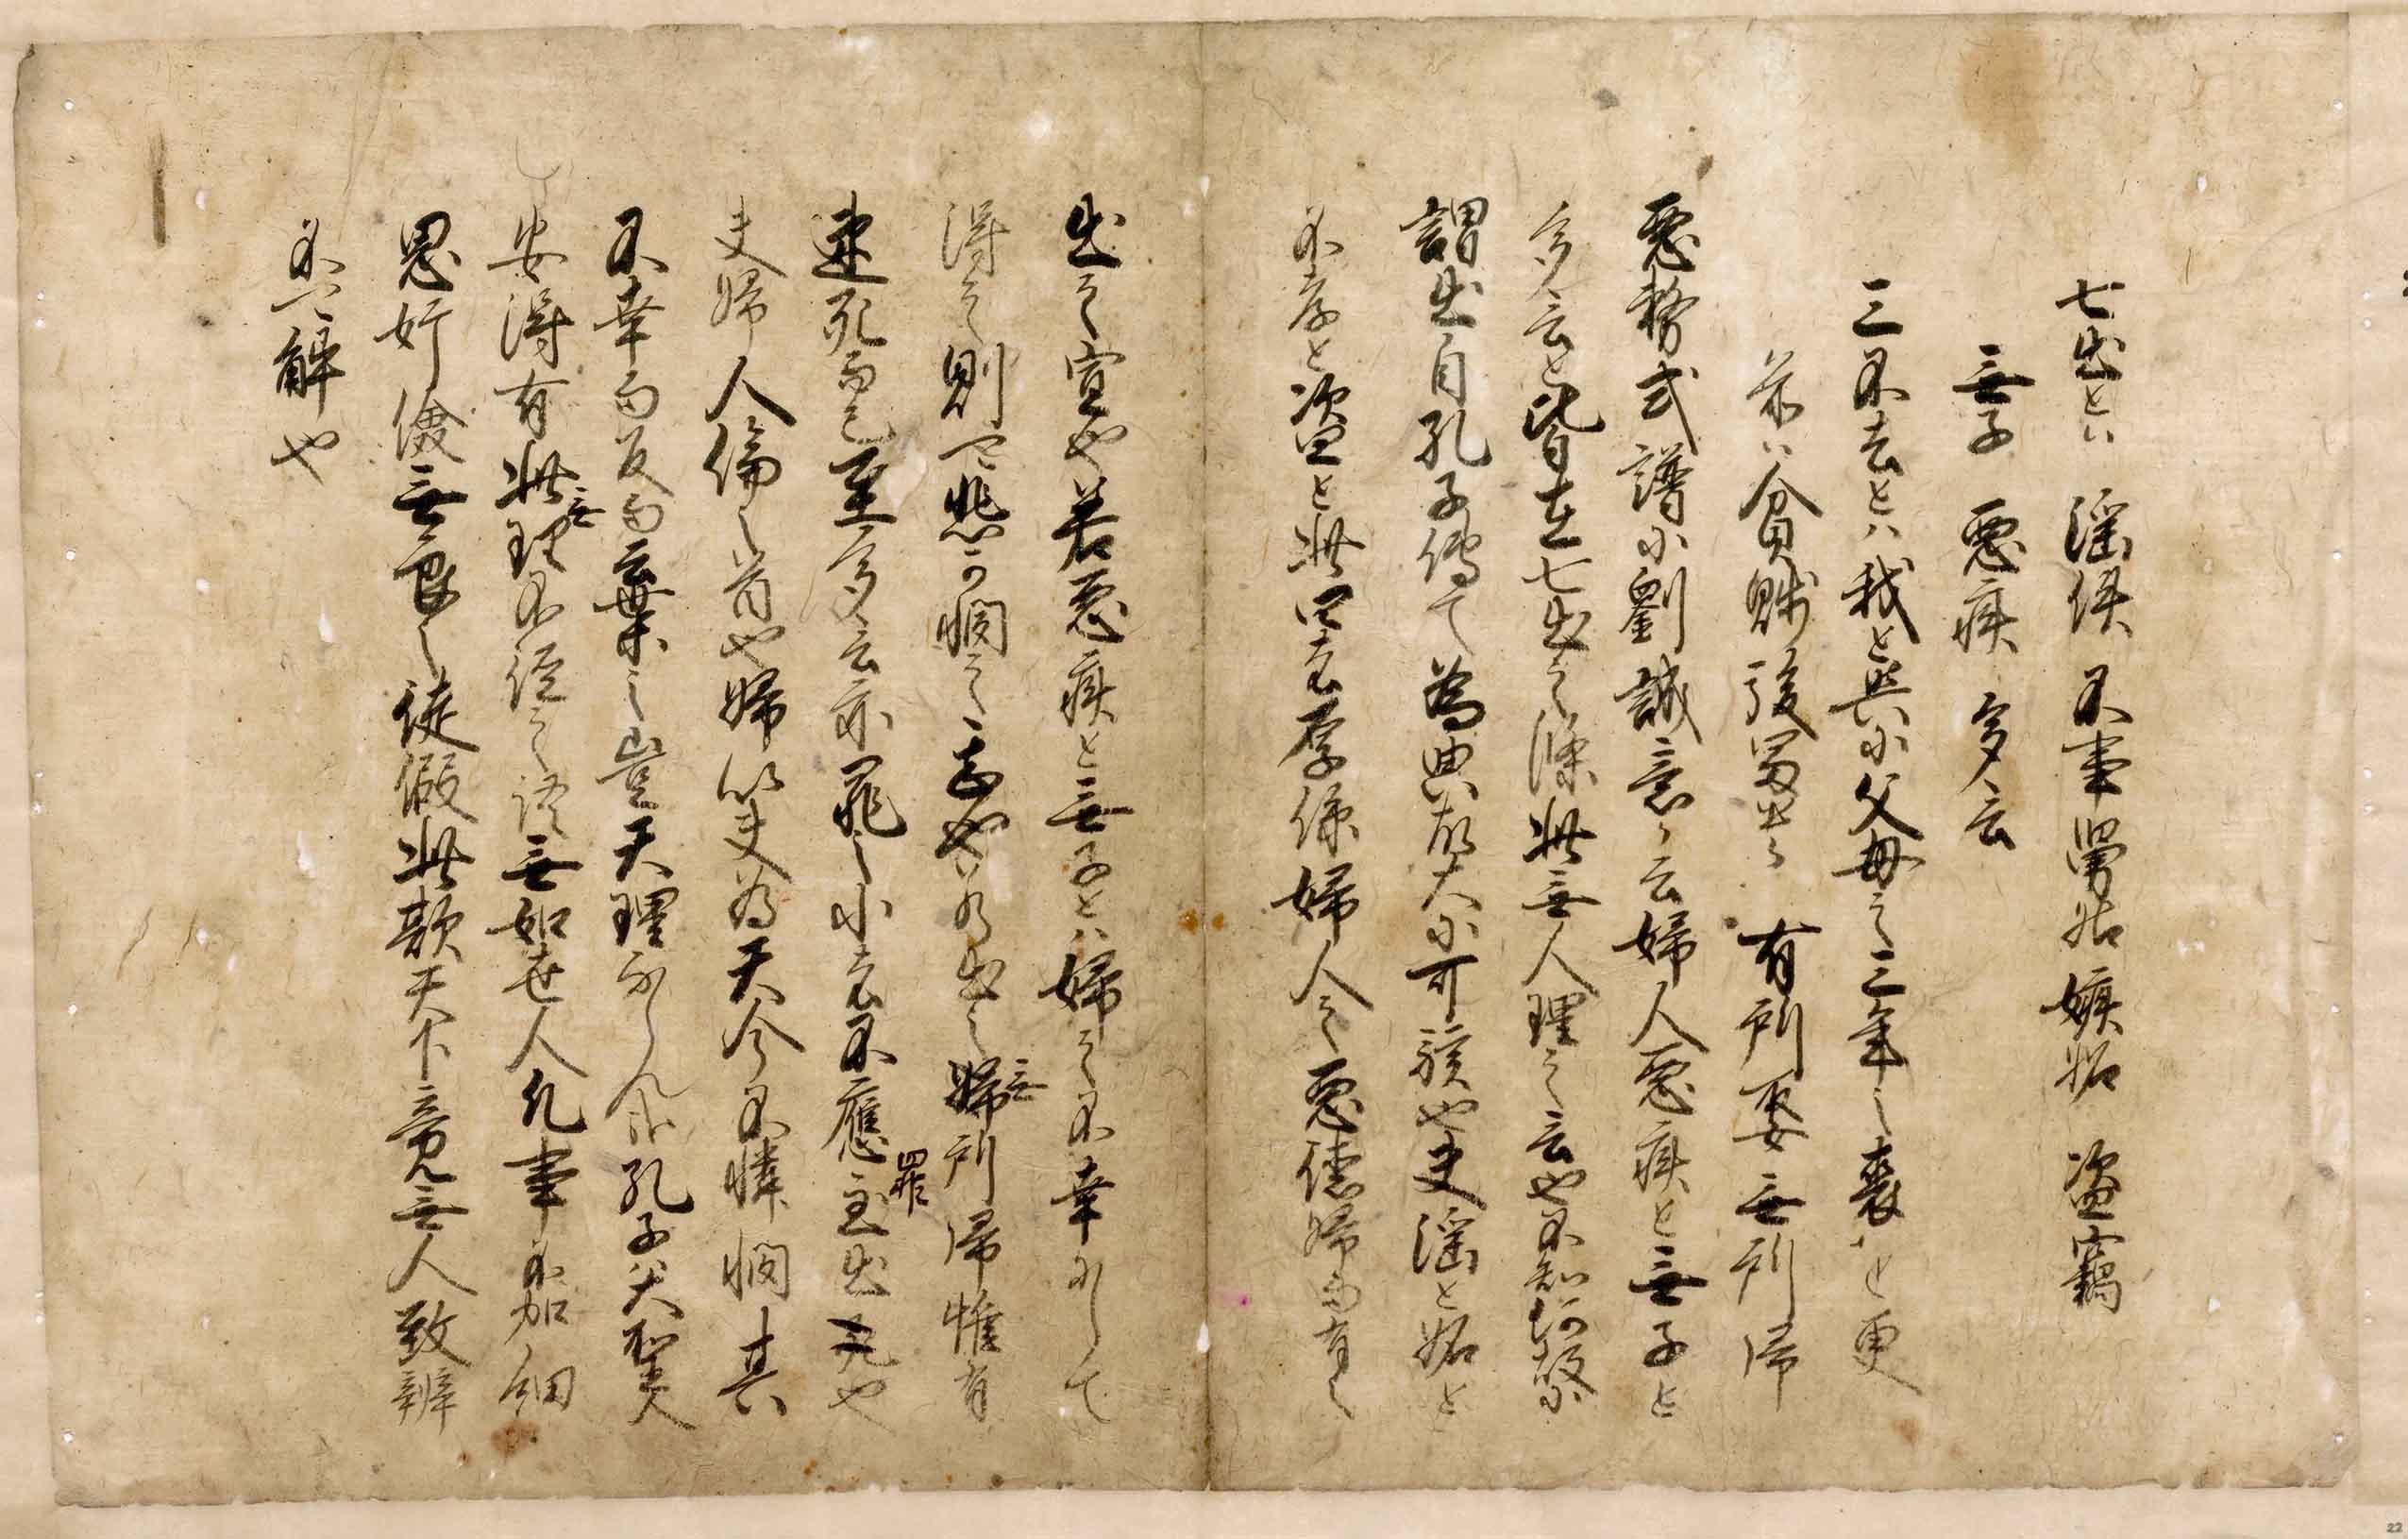 七出とハ 淫佚 不事舅姑 嫉妬 盗竊
無子 悪疾 多言
三不去とハ 我と與に父母之三年之喪を更
前ハ貧賎後冨貴 有所娶無所帰
悪 劉誠意之云婦人悪疾と無子と
多言と皆在七出之條此無人理之言也不知何故に
謂出自孔子傳て為典故大に可駭也夫淫と妬と
不孝と盗と此四者厚係婦人之悪徳婦而有之
出之宜也若悪疾と無子とハ婦之不幸にして
得之則可悲可憫之 也 出之無婦所帰惟有
速死而已至多言亦罪之小者不應至出罪也
夫婦人倫之首也婦以夫為天今不憐憫其
不幸而反而棄之豈天理ならんや孔子大聖人
安得有此無理不經之談無如世人凡事不加細
思奸儂無良之徒假此欺天下竟無人致辨
不可解也